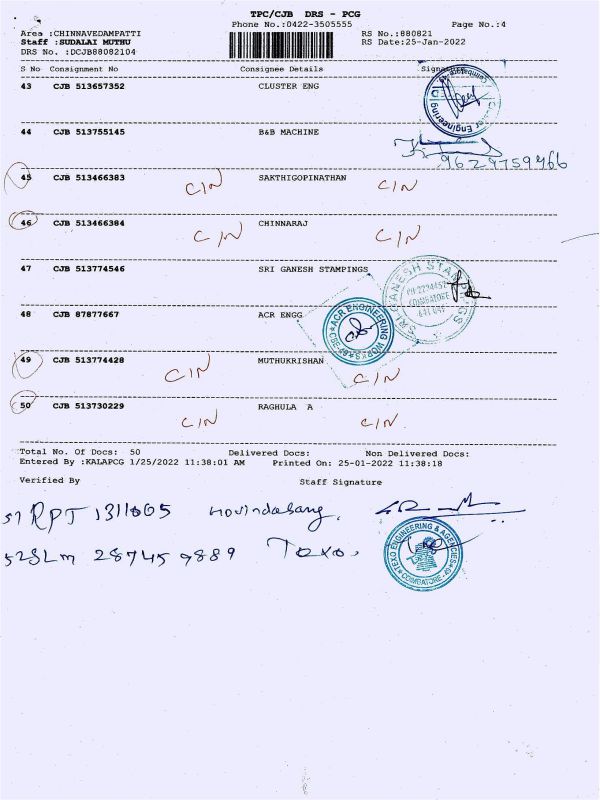 TPC/CJB DRS - PCG
Phone No.:0422-3505555 Page No.:4
Area :CHINNAVEDAMPATTI RS No.:880821
Staff :SUDALAI MUTHU RS Date:25-Jan-2022
DRS No. :DCJB88082104
S No Consignment No Consignee Details Signature
43 CJB 513657352 CLUSTER ENG
Cluster Engineering Coimbatore
44 CJB 513755145 B&B MACHINE
9629759466
45 CJB 513466383 CIN SAKTHIGOPINATHAN CIN
46 CJB 513466384 CIN CHINNARAJ CIN
47 CJB 513774546 SRI GANESH STAMPINGS
SRI GANESH STAMPINGS
COIMBATORE
48 CJB 87877667 ACR ENGG
ACR ENGINEERING WORKS
49 CJB 513774428 CIN MUTHUKRISHAN CIN
50 CJB 513730229 CIN RAGHULA A CIN
Total No. Of Docs: 50 Delivered Docs: Non Delivered Docs:
Entered By :KALAPCG 1/25/2022 11:38:01 AM Printed On: 25-01-2022 11:38:18
Verified By Staff Signature
51 RPJ 1311005
52 SLM 287459889 Texo.
TEXO ENGINEERING & AGENCIES
COIMBATORE